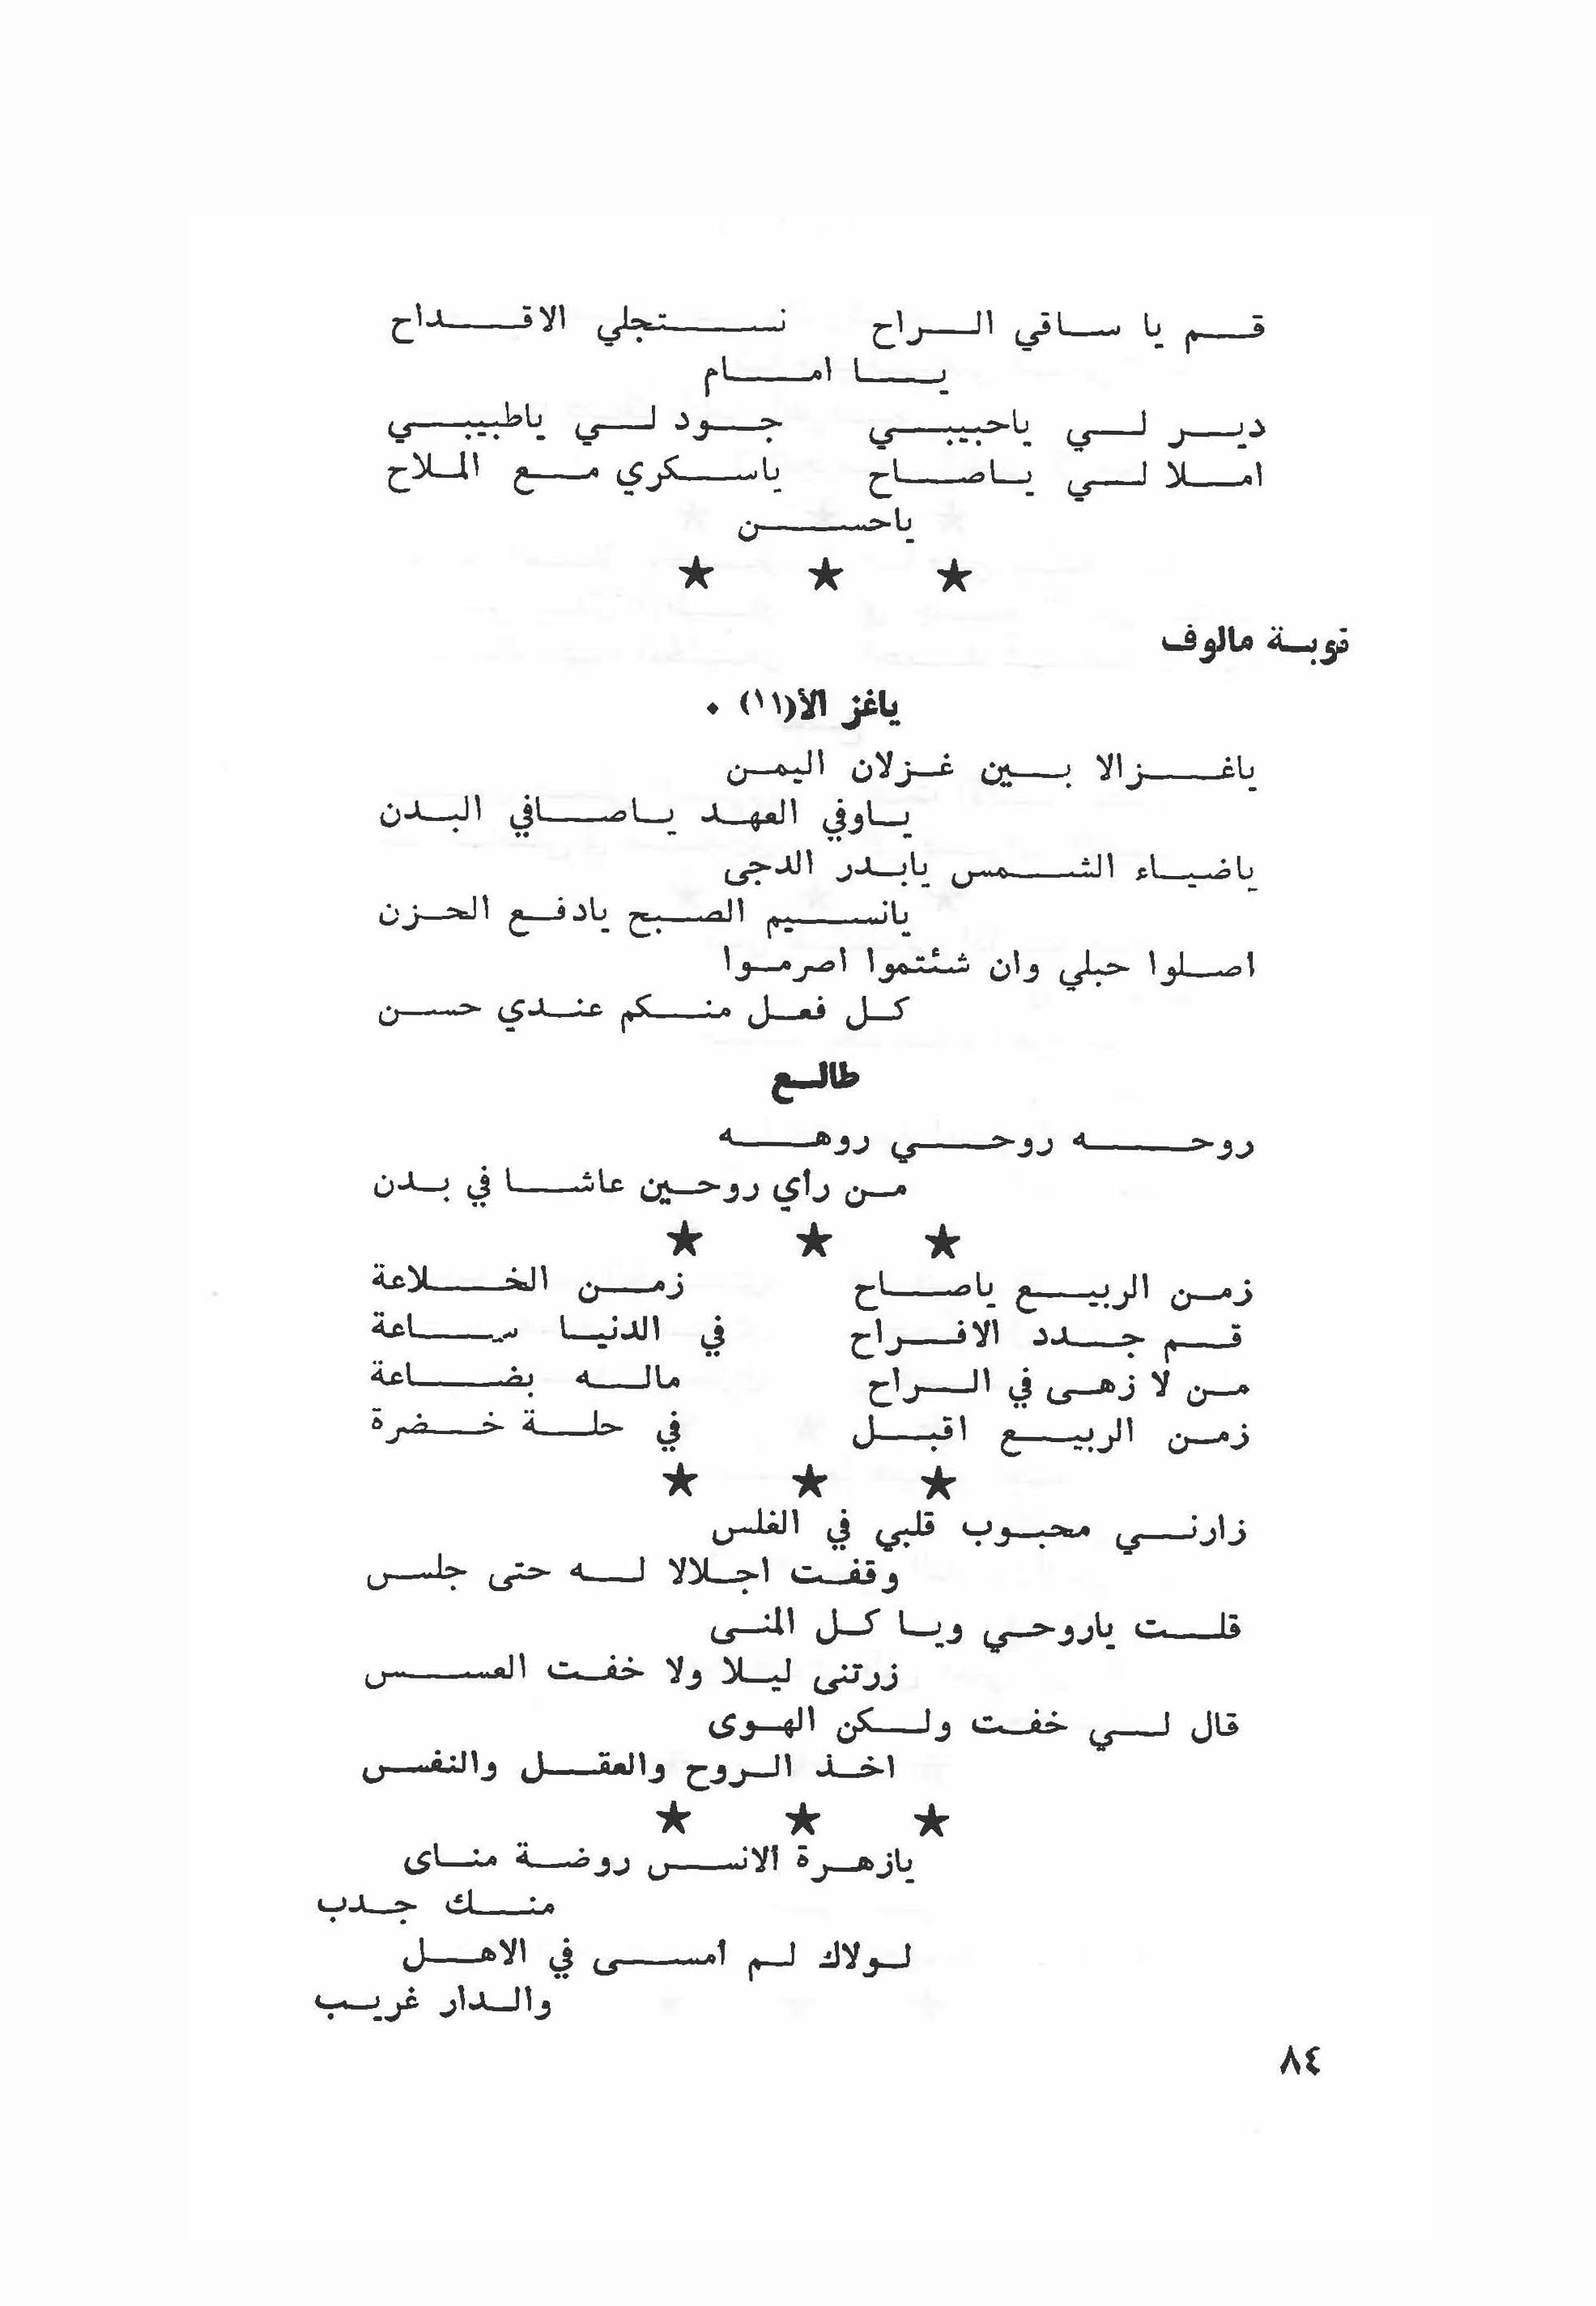 قم يا ساقي الراح نستجلي الاقداح
يا امام
دير لي ياحبيبي جود لي ياطبيبي
املا لي ياصاح ياسكري مع الملاح
ياحسن
★ ★ ★
نوبة مالوف
ياغز الأ(١١) .
ياغزالا بين غزلان اليمن
ياوفي العهد ياصافي البدن
ياضياء الشمس يابدر الدجى
يانسيم الصبح يادفع الحزن
اصلوا حبلي وان شئتموا اصرموا
كل فعل منكم عندي حسن
طالع
روحه روحي روهه
من رأي روحين عاشا في بدن
★ ★ ★
زمن الربيع ياصاح زمن الخلاعة
قم جدد الافراح في الدنيا ساعة
من لا زهى في الراح ماله بضاعة
زمن الربيع اقبل في حلة خضرة
★ ★ ★
زارني محبوب قلبي في الغلس
وقفت اجلالا له حتى جلس
قلت ياروحي ويا كل المنى
زرتنى ليلا ولا خفت العسس
قال لي خفت ولكن الهوى
اخذ الروح والعقل والنفس
★ ★ ★
يازهرة الانس روضة مناى
منك جدب
لولاك لم امسى في الاهل
والدار غريب
٨٤